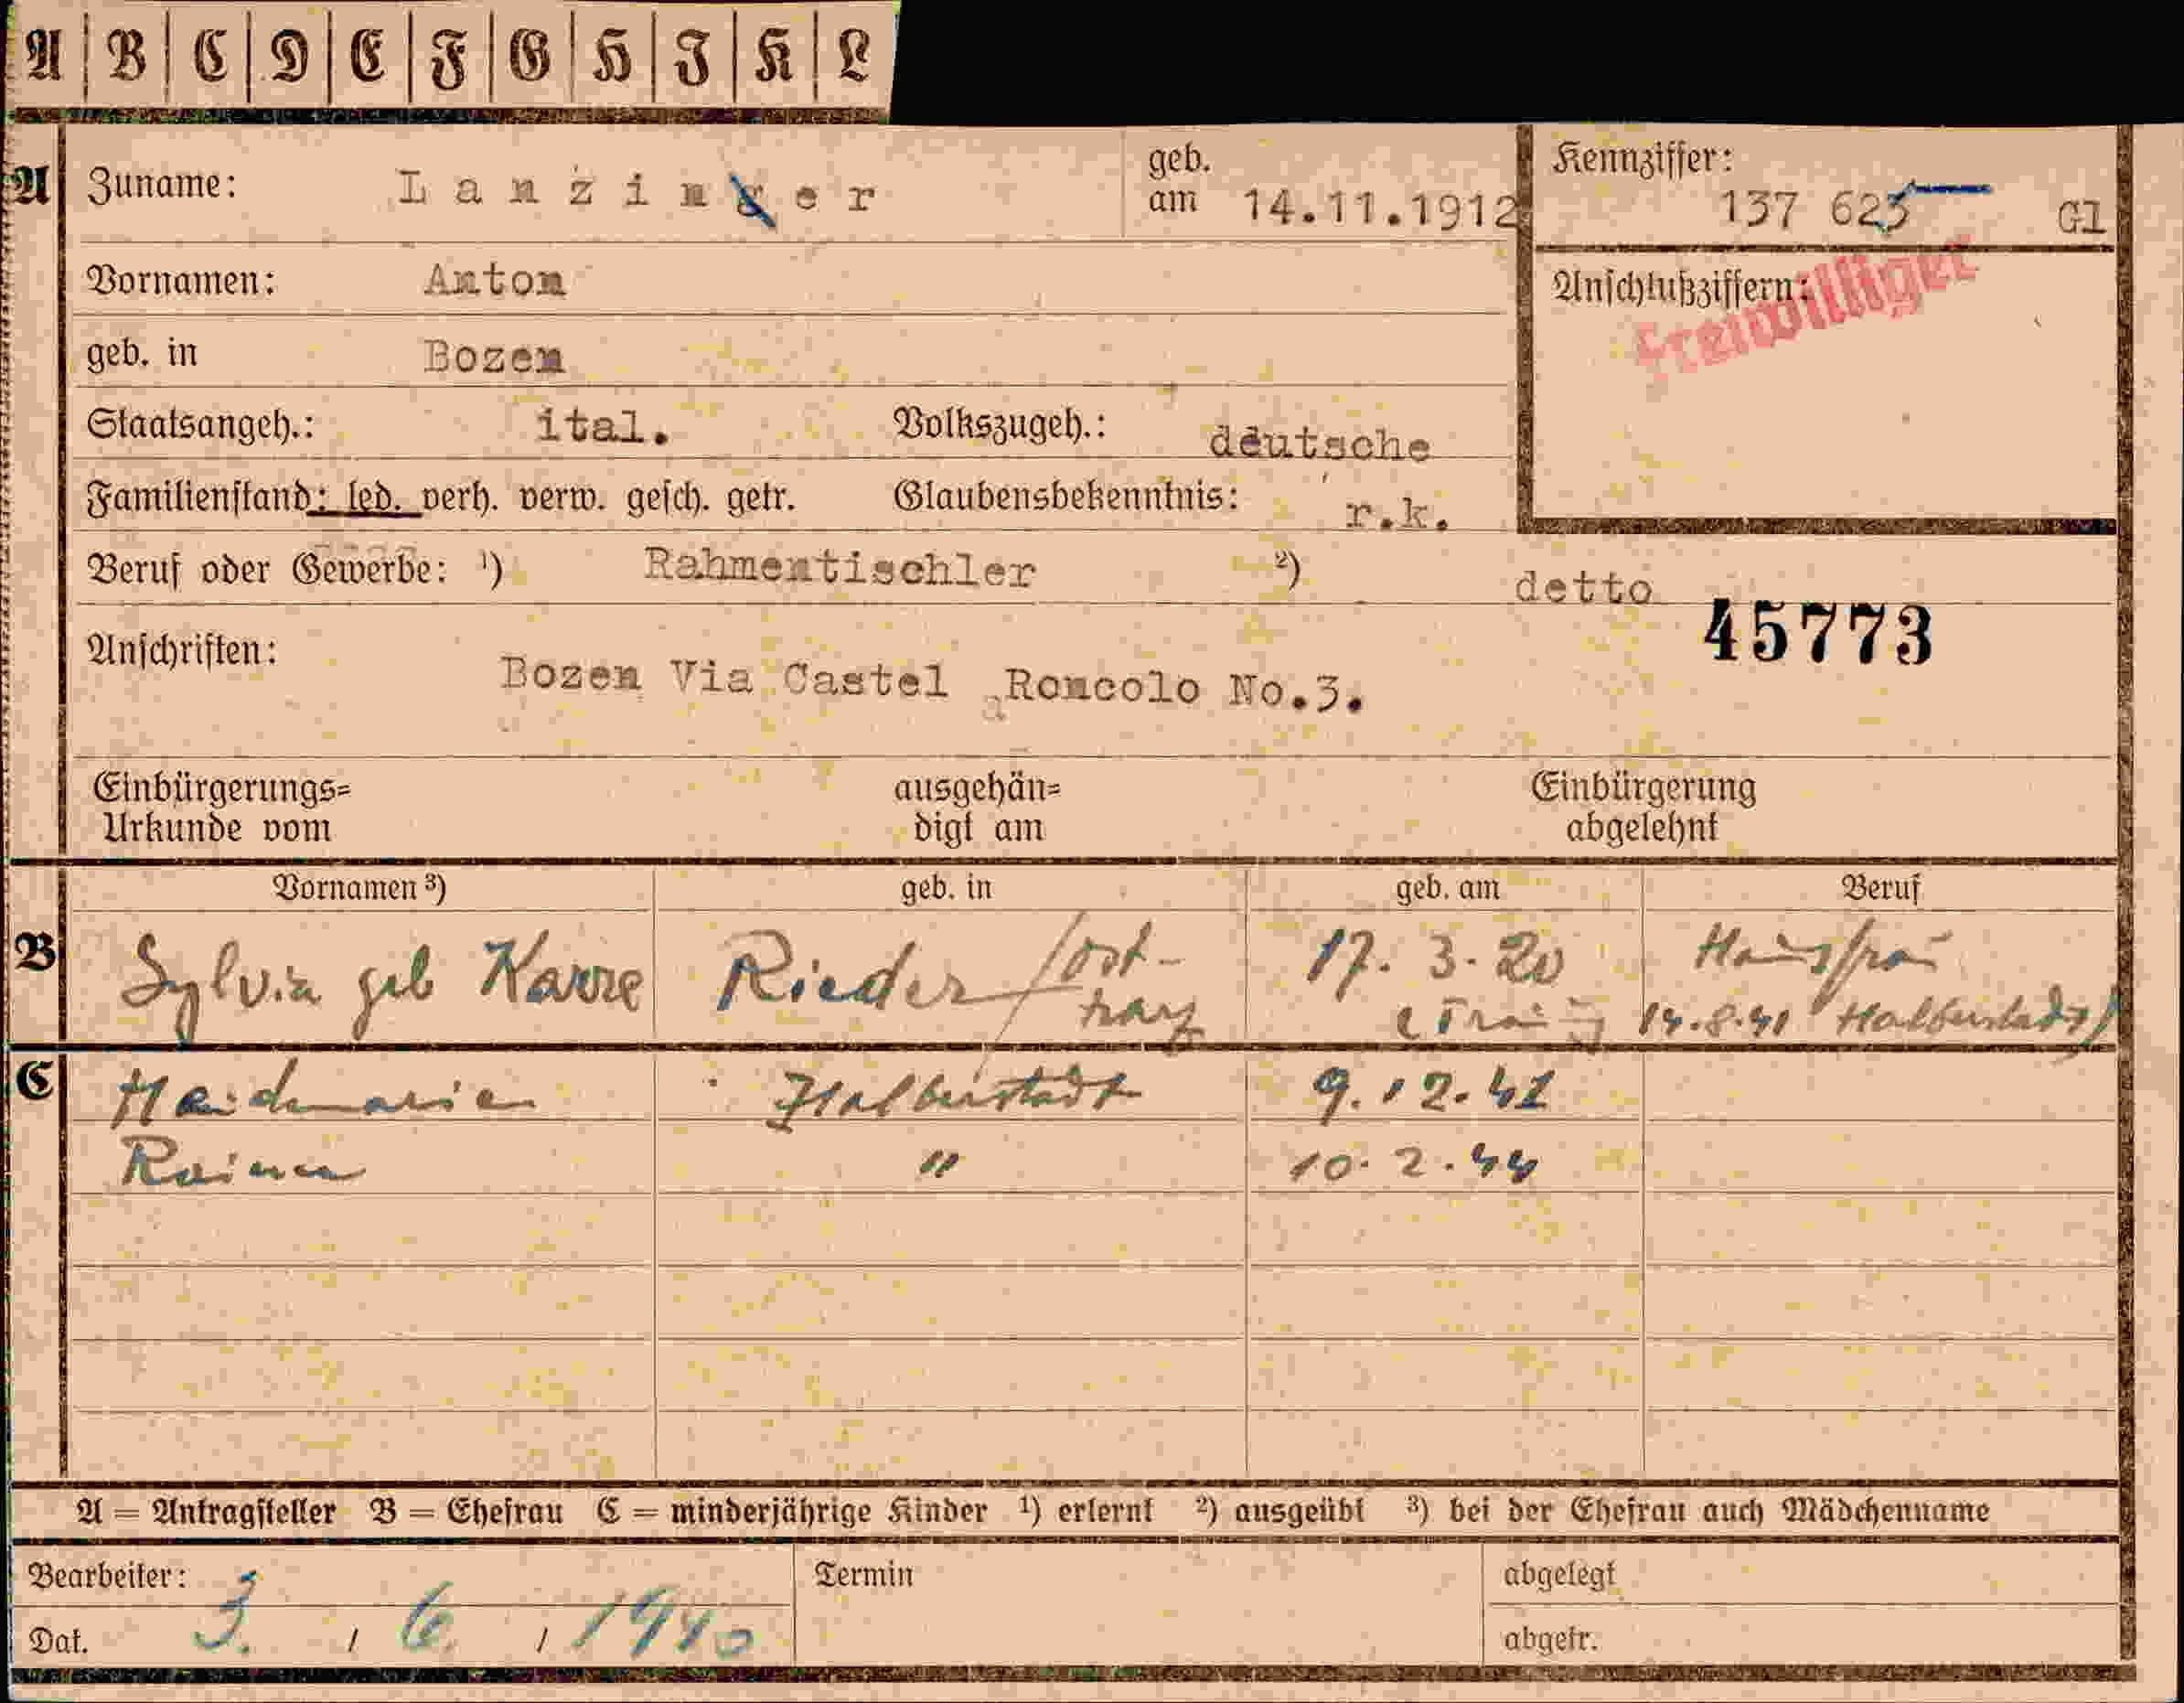 A B C D E F G H I K L
A Zuname: Lanziner geb. am 14.11.1912 Kennziffer: 137 625 Gl
Vornamen: Anton Anschlußziffern: Freiwilliger
geb. in Bozen
Staatsangeh.: ital. Volkszugeh.: deutsche
Familienstand: led. verh. verw. gesch. getr. Glaubensbekenntnis: r.k.
Beruf oder Gewerbe: ¹) Rahmentischler ²) detto
45773
Anschriften: Bozen Via Castel Roncolo No.3.
Einbürgerungs= ausgehän= Einbürgerung
Urkunde vom digt am abgelehnt
Vornamen ³) geb. in geb. am Beruf
B Sylvia geb Karre Rieder / Ost- 17. 3. 20 Hausfrau
harz 14.8.41 Halberstadt)
C Heidemarie Halberstadt 9.12.41
Rainer " 10.2.44
A = Antragsteller B = Ehefrau C = minderjährige Kinder ¹) erlernt ²) ausgeübt ³) bei der Ehefrau auch Mädchenname
Bearbeiter: Termin abgelegt
Dat. 3. / 6. / 1940 abgetr.